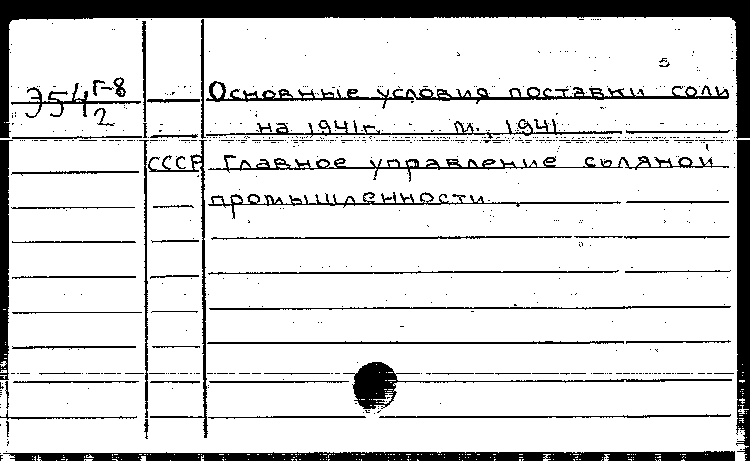 Э54 Г-8
2
Основные условия поставки соли
на 1941г. М., 1941
СССР Главное управление соляной
промышленности